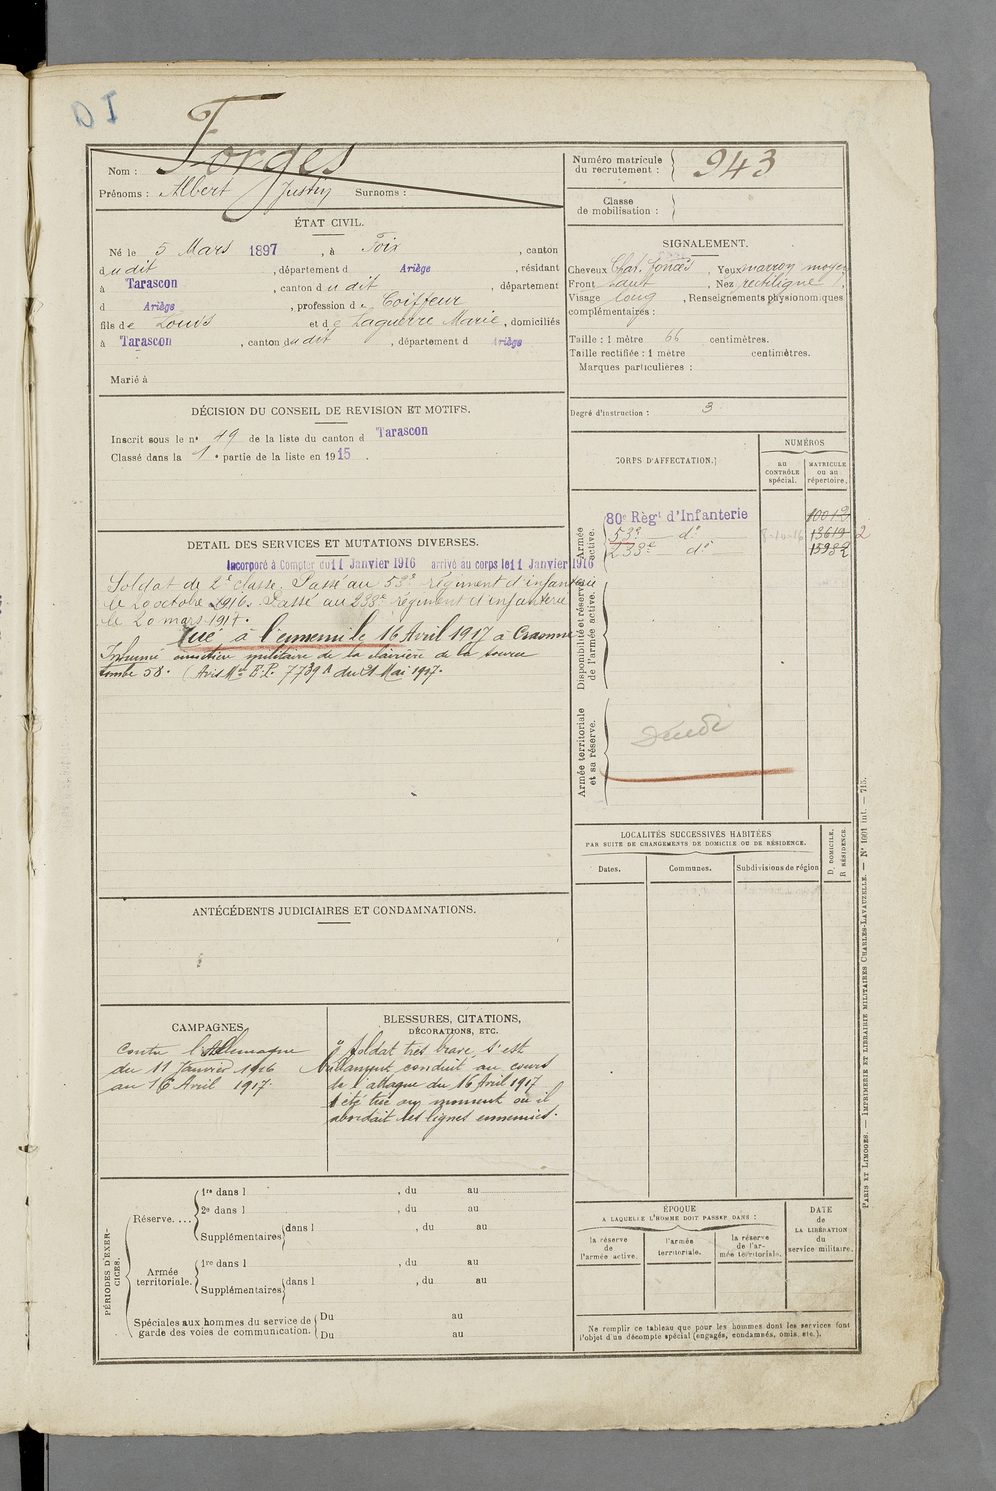 Forges
Nom :
Prénoms : Albert Justin Surnoms :
Numéro matricule
du recrutement : 943
Classe
de mobilisation :
ÉTAT CIVIL.
Né le 5 Mars 1897, à Foix, canton
dudit, département d Ariège, résidant
à Tarascon, canton dudit, département
d Ariège, profession de Coiffeur
fils de Louis et de Laguerre Marie, domiciliés
à Tarascon, canton dudit, département d Ariège
Marié à
SIGNALEMENT.
Cheveux Chat. foncés, Yeux marron moyen
Front haut, Nez rectiligne
Visage long, Renseignements physionomiques
complémentaires :
Taille : 1 mètre 66 centimètres.
Taille rectifiée : 1 mètre centimètres.
Marques particulières :
Degré d'instruction : 3
DÉCISION DU CONSEIL DE REVISION ET MOTIFS.
Inscrit sous le n° 19 de la liste du canton d Tarascon
Classé dans la 1e partie de la liste en 1915.
CORPS D'AFFECTATION.
NUMÉROS
au
CONTRÔLE
spécial.
MATRICULE
ou au
répertoire.
Armée
active.
80e Régt d'Infanterie 10012
53e d° 13619 2
233e d° 15982
Disponibilité et réserve
de l'armée active.
Armée territoriale
et sa réserve.
DÉTAIL DES SERVICES ET MUTATIONS DIVERSES.
Incorporé à Compter du 11 Janvier 1916 arrivé au corps le 11 Janvier 1916
Soldat de 2e classe. Passé au 53e régiment d'infanterie
le 20 octobre 1916. Passé au 233e régiment d'infanterie
le 20 mars 1917.
Tué à l'ennemi le 16 Avril 1917 à Craonne
Inhumé cimetière militaire de la clairière de la source
tombe 58. (Avis Mel E.P. 7739 A du 21 Mai 1917.
LOCALITÉS SUCCESSIVES HABITÉES
PAR SUITE DE CHANGEMENTS DE DOMICILE OU DE RÉSIDENCE.
Dates.
Communes.
Subdivisions de région
D. DOMICILE.
R. RÉSIDENCE.
ANTÉCÉDENTS JUDICIAIRES ET CONDAMNATIONS.
CAMPAGNES
Contre l'Allemagne
du 11 Janvier 1916
au 16 Avril 1917.
BLESSURES, CITATIONS,
DÉCORATIONS, ETC.
"Soldat très brave, s'est
brillamment conduit au cours
de l'attaque du 16 Avril 1917
A été tué au moment où il
abordait les lignes ennemies.
PÉRIODES D'EXERCICES.
Réserve. ...
1re dans l , du au
2e dans l , du au
Supplémentaires dans l , du au
Armée
territoriale.
1re dans l , du au
Supplémentaires dans l , du au
Spéciales aux hommes du service de
garde des voies de communication.
Du au
Du au
ÉPOQUE
A LAQUELLE L'HOMME DOIT PASSER DANS :
la réserve
de
l'armée active.
l'armée
territoriale.
la réserve
de l'ar-
mée territoriale.
DATE
de
LA LIBÉRATION
du
service militaire.
Ne remplir ce tableau que pour les hommes dont les services font
l'objet d'un décompte spécial (engagés, condamnés, omis, etc.).
PARIS ET LIMOGES. — IMPRIMERIE ET LIBRAIRIE MILITAIRES CHARLES-LAVAUZELLE. — N° 1601 int. — 715.